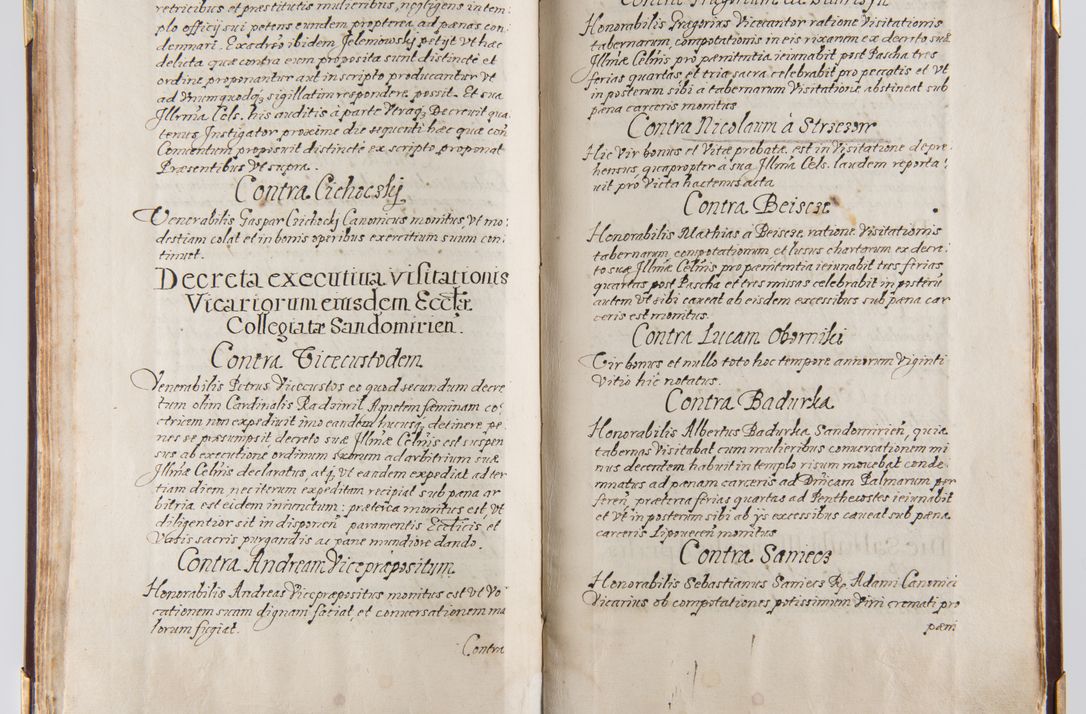 retricibus et præstitutis mulieribus, nęgligens in tem:
plo officij sui petens eundem propterea ad pænas con
demnari. Ex adverso ibidem Jelemiowskj petyt vt hæc
delicta quæ contra eum proposita sunt distincte et
ordine proponantur aut in scripto producantur vt
ad vnumquodq; sigillatim respondere possit. Et sua
Illrma Cels. his auditis à parte vtraq; Decrevit qua
tenus Instigator proxime die sequenti hæc quæ con
Conventum proposuit distincte ex scripto proponat
Præsentibus vt supra.
Contra Cichocskj
Venerabilis Gaspar Czichockj Canonicus monitus, vt mo:
destiam colat et in bonis operibus exercitium suum con:
tinuet.
Decreta executiua visitationis
Vicariorum eiusdem Ecctæ
Collegiatæ Sandomirien.
Contra Vicecustodem
Venerabilis Petrus Vicecustos eo quod secundum decre
tum olim Cardinalis Radziwil Agnetem fæminam co:
ctricem non expediuit imo eandem hucusq; detinere pe:
nes se præsumpsit, decreto suæ Illmæ Celnis est suspen
sus ab executione ordinum sacrorum ad arbitrium suæ
Illmæ Celnis declaratus, atq; vt eandem expediat ad ter
tiam diem, nec iterum expeditam recipiat sub pæna ar
bitria est eidem iniunctum: præterea monitus est, vt
diligentior sit in disponen paramentis Eccticis et
Vasis sacris purgandis ac pane mundiore dando.
Contra Andream Vicepræpositum
Honorabilis Andreas Vicepræpositus monitus est vt Vo:
cationem suam dignam faciat, et conuersationem ma
lorum fugiat.
Contra
Honorabilis Gregorius Vicecantor ratione Visitationis
tabernarum, compotationis in eis rixarum ex decreto suæ
Illmæ Celnis pro pænitentia ieiunabit post Pascha tres
ferias quartas et tria sacra celebrabit pro peccatis et vt
in posterum sibi a tabernarum Visitatione abstineat sub
pæna carceris monitus
Contra Nicolaum à Strzeson
Hic Vir bonus et Vitæ probatæ est in Visitatione depre:
hensus, quapropter à sua Illma Cels. laudem reporta:
uit pro Victa hactenus acta
Contra Beiscze
Honorabilis Mathias à Beiscze, ratione Visitationis
tabernarum, compotationum et lusus chartarum ex decre:
to suæ Illmæ Celnis pro pænitentia ieiunabit tres ferias
quartas post Pascha et tres missas celebrabit in posterū
autem vt sibi caueat ab eisdem excessibus sub pæna car
ceris est monitus.
Contra Lucam Oborniki
Vir bonus et nullo toto hoc tempore annorum Viginti
Vitio hic notatus.
Contra Badurka
Honorabilis Albertus Badurka Sandomirien, quia
tabernas Visitabat cum mulieribus conuersationem mi
nus decentem habuit in templo risum mouebat conde
mnatus ad pænam carceris ad Dnicam Palmarum per
feren, præterea ferias quartas ad Penthecostes ieiunabit
et vt in posterum sibi ab ijs excessibus caueat sub pæna
carceris Lipouecen monitus
Contra Samecz
Honorabilis Sebastianus Samecz R. Adami Canonici
Vicarius ob compotationes potissimum Vini cremati pro
pæni